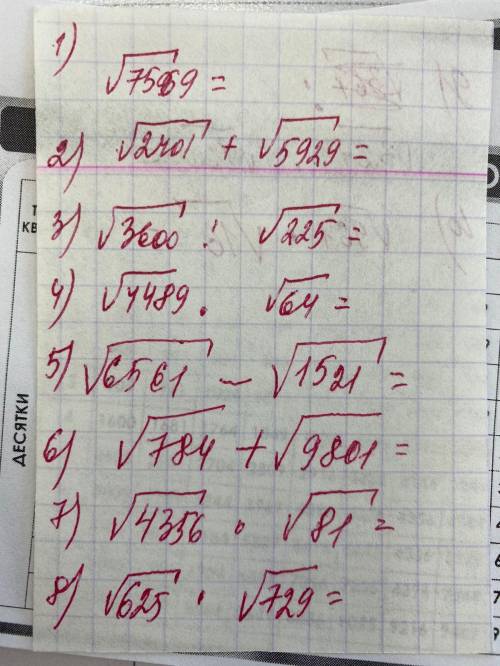 1)
√7569 =
2) √2401 + √5929 =
3) √3600 : √225 =
4) √4489 · √64 =
5) √6561 - √1521 =
6) √784 + √9801 =
7) √4356 · √81 =
8) √625 · √729 =
ДЕСЯТКИ